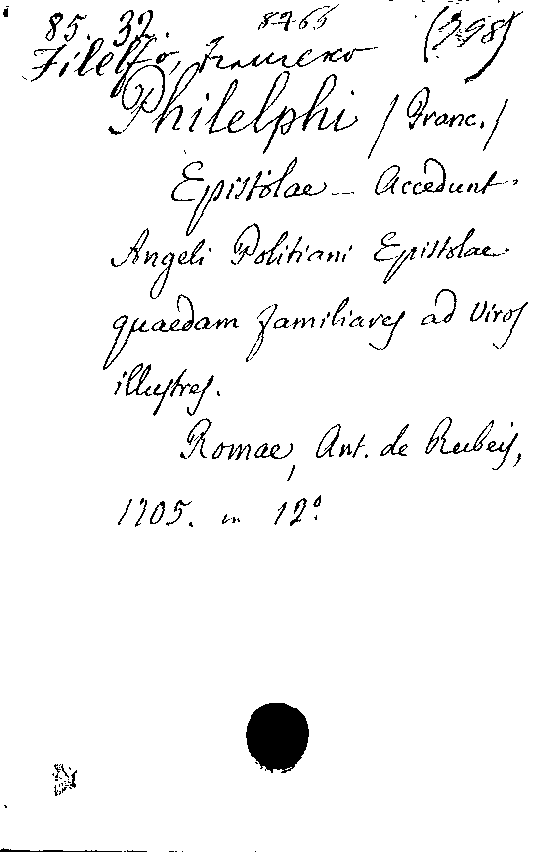 85. 32. 8465 (398)
Filelfo, Francesco
Philelphi /Franc./
Epistolae – Accedunt
Angeli Politiani Epistolae
quaedam familiares ad viros
illustres.
Romae, Ant. de Rubeis,
1705. in 12º